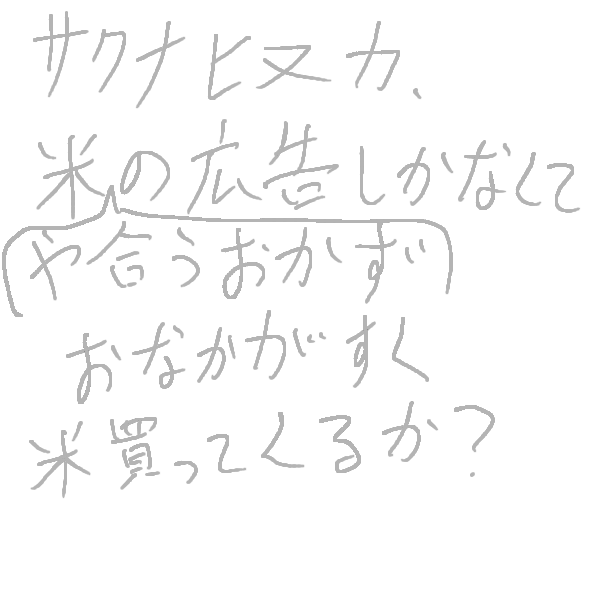 サクナヒヌカ、
米の広告しかなくて
や合うおかず
おなかがすく
米買ってくるか?